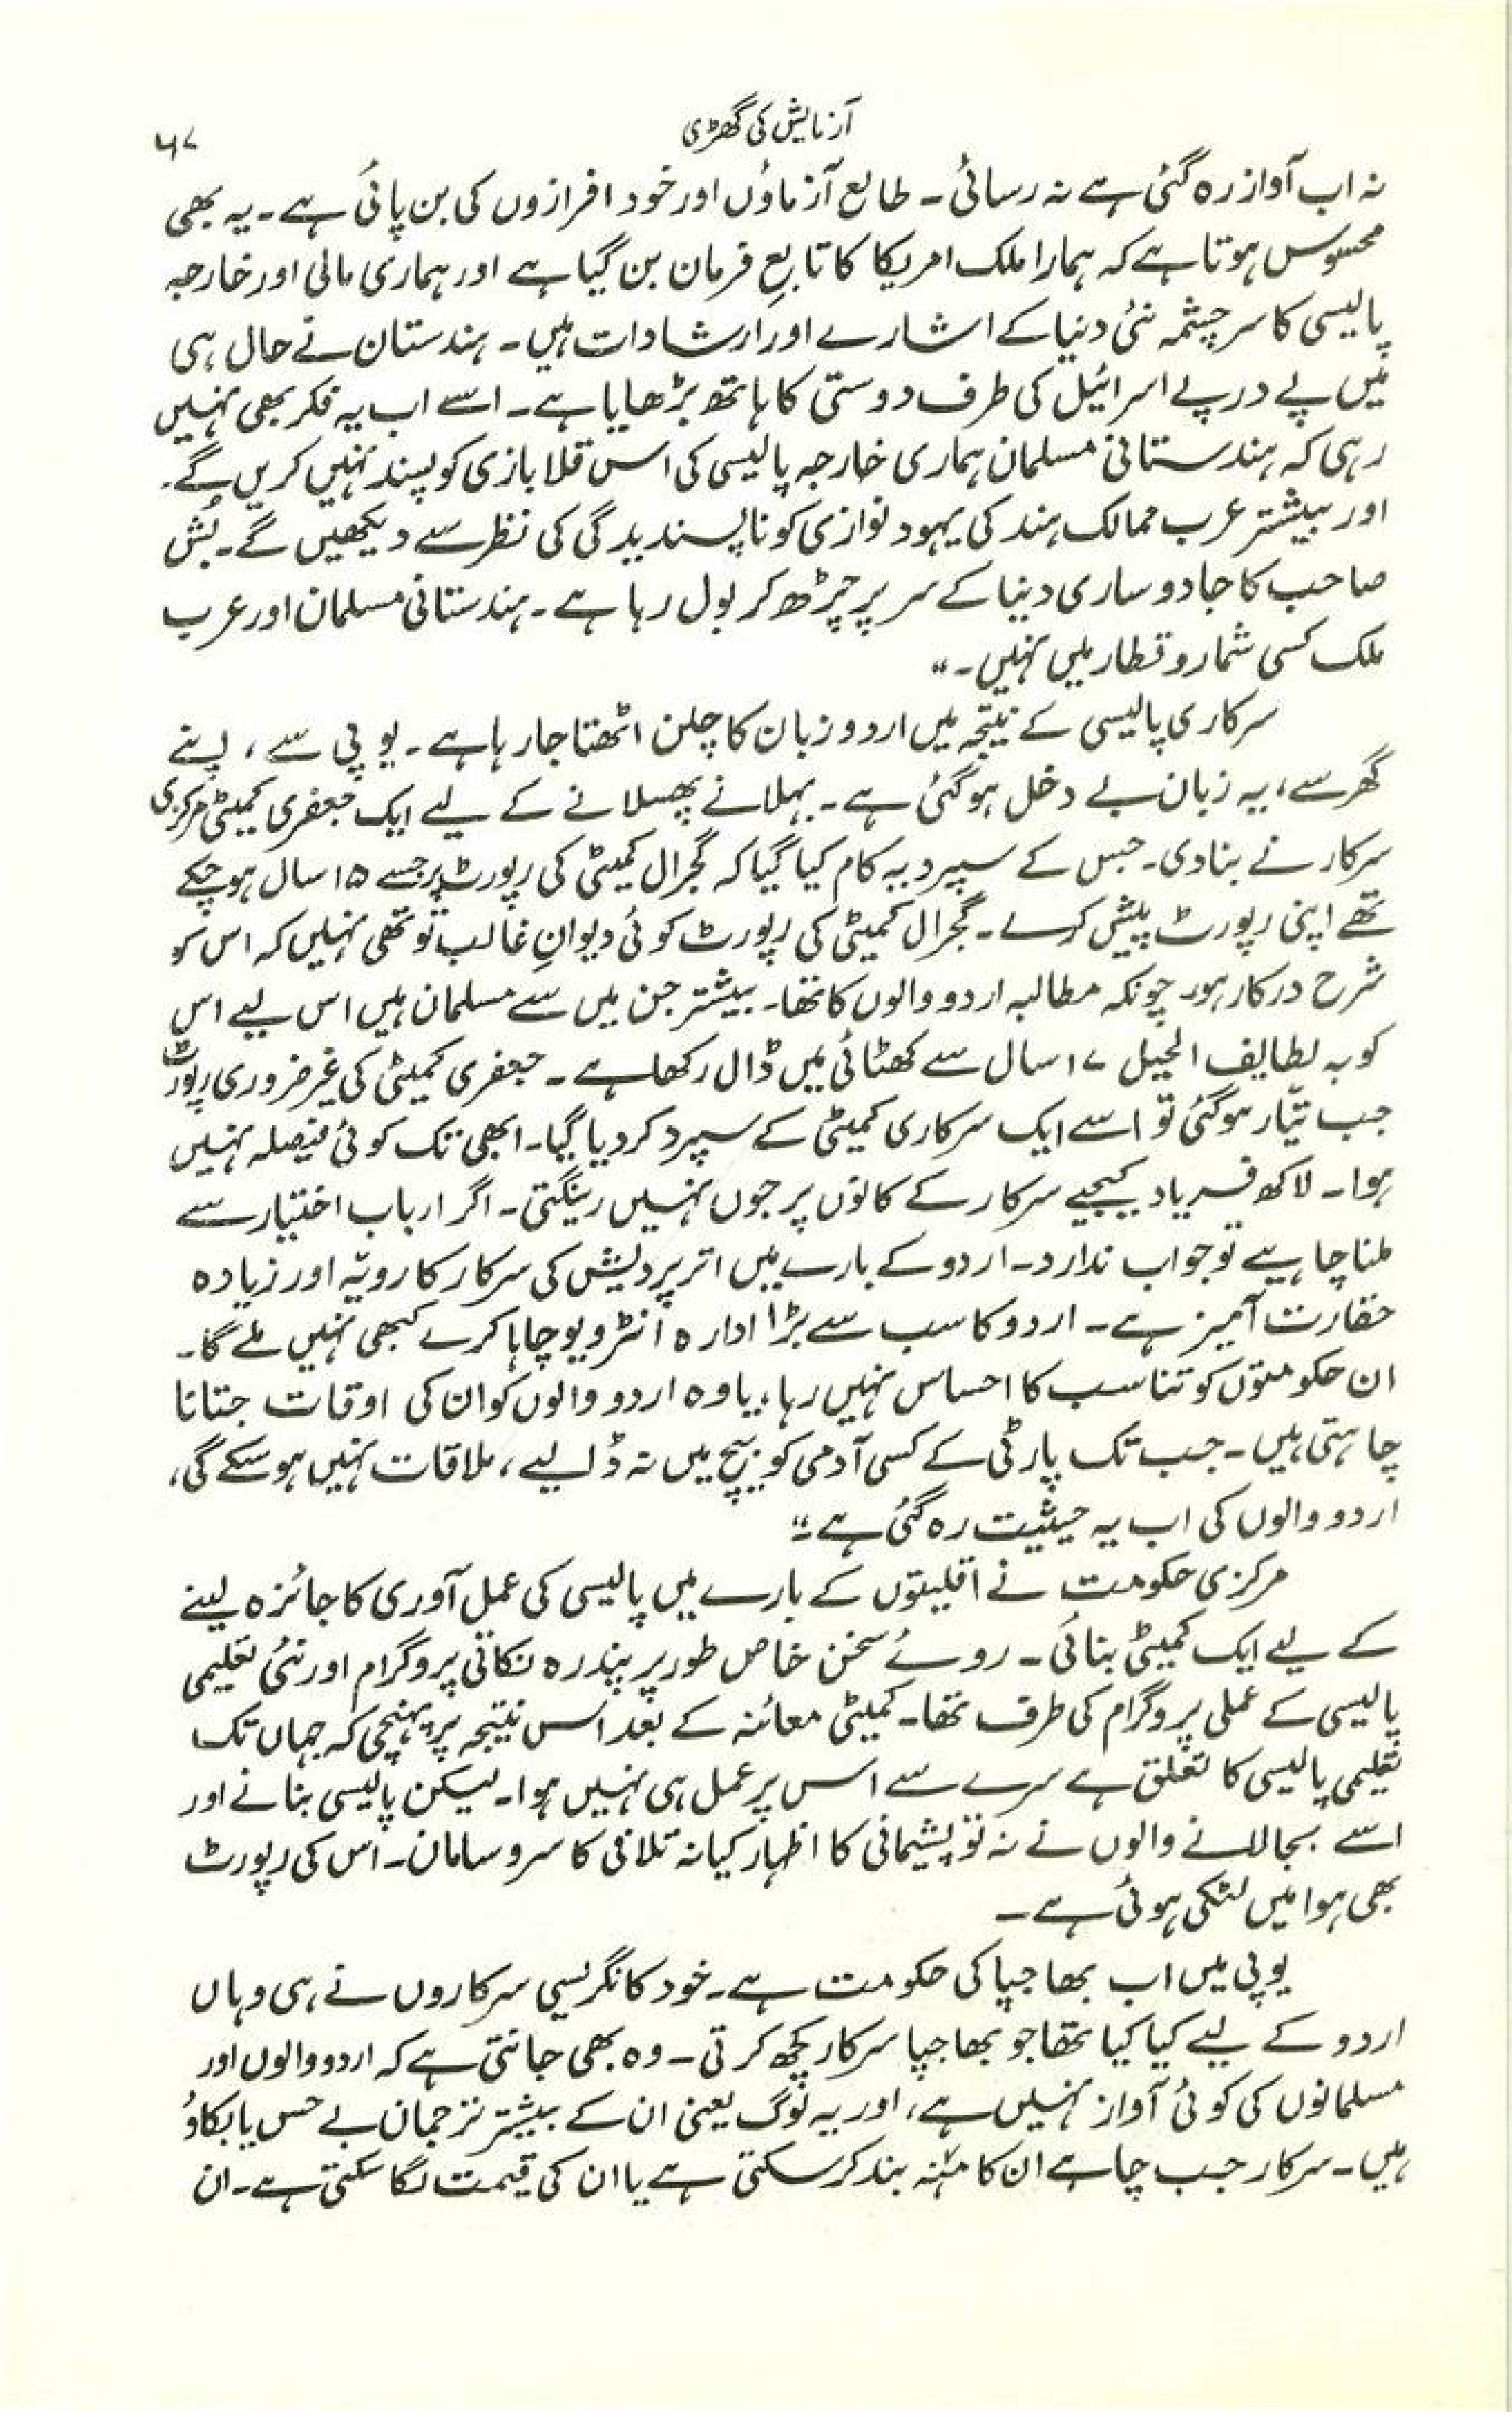 آزمایش کی گھڑی
۵۷
نہ اب آواز رہ گئی ہے نہ رسائی ۔ طالع آزماؤں اور خود افرازوں کی بن پائی ہے۔ یہ بھی
محسوس ہوتا ہے کہ ہمارا ملک امریکا کا تابعِ فرمان بن گیا ہے اور ہماری مالی اور خارجہ
پالیسی کا سرچشمہ نئی دنیا کے اشارے اور ارشادات ہیں۔ ہندستان نے حال ہی
میں پے در پے اسرائیل کی طرف دوستی کا ہاتھ بڑھایا ہے۔ اسے اب یہ فکر بھی نہیں
رہی کہ ہندستانی مسلمان ہماری خارجہ پالیسی کی اس قلابازی کو پسند نہیں کریں گے۔
اور بیشتر عرب ممالک ہند کی یہود نوازی کو ناپسندیدگی کی نظر سے دیکھیں گے۔ بُش
صاحب کا جادو ساری دنیا کے سر پر چڑھ کر بول رہا ہے۔ ہندستانی مسلمان اور عرب
ملک کسی شمار و قطار میں نہیں۔"
سرکاری پالیسی کے نتیجہ میں اردو زبان کا چلن اٹھتا جا رہا ہے۔ یو پی سے، اپنے
گھر سے، یہ زبان بے دخل ہو گئی ہے۔ بہلانے پھسلانے کے لیے ایک جعفری کمیٹی مرکزی
سرکار نے بنادی۔ جس کے سپرد یہ کام کیا گیا کہ گجرال کمیٹی کی رپورٹ پر جسے ۱۵ سال ہو چکے
تھے اپنی رپورٹ پیش کرے۔ گجرال کمیٹی کی رپورٹ کوئی دیوانِ غالب تو تھی نہیں کہ اس کو
شرح درکار ہو۔ چونکہ مطالبہ اردو والوں کا تھا۔ بیشتر جن میں سے مسلمان ہیں اس لیے اس
کو بہ لطایف الحیل ۱۷ سال سے کھٹائی میں ڈال رکھا ہے ۔ جعفری کمیٹی کی غیر ضروری رپورٹ
جب تیّار ہو گئی تو اسے ایک سرکاری کمیٹی کے سپرد کر دیا گیا۔ ابھی تک کوئی فیصلہ نہیں
ہوا۔ لاکھ فریاد کیجیے سرکار کے کانوں پر جوں نہیں رینگتی۔ اگر ارباب اختیار سے
ملنا چاہیے تو جواب ندارد۔ اردو کے بارے میں اتر پردیش کی سرکار کا رویّہ اور زیادہ
حقارت آمیز ہے۔ اردو کا سب سے بڑا ادارہ انٹرویو چاہا کرے کبھی نہیں ملے گا۔
ان حکومتوں کو تناسب کا احساس نہیں رہا، یا وہ اردو والوں کو ان کی اوقات جتانا
چاہتی ہیں ۔ جب تک پارٹی کے کسی آدمی کو بیچ میں نہ ڈالیے، ملاقات نہیں ہو سکے گی،
اردو والوں کی اب یہ حیثیت رہ گئی ہے۔"
مرکزی حکومت نے اقلیتوں کے بارے میں پالیسی کی عمل آوری کا جائزہ لینے
کے لیے ایک کمیٹی بنائی ۔ روئے سخن خاص طور پر پندرہ نکاتی پروگرام اور نئی تعلیمی
پالیسی کے عملی پروگرام کی طرف تھا۔ کمیٹی معائنہ کے بعد اس نتیجہ پر پہنچی کہ جہاں تک
تعلیمی پالیسی کا تعلق ہے سرے سے اس پر عمل ہی نہیں ہوا۔ لیکن پالیسی بنانے اور
اسے بجالانے والوں نے نہ تو پشیمانی کا اظہار کیا نہ تلافی کا سروسامان۔ اس کی رپورٹ
بھی ہوا میں لٹکی ہوئی ہے ۔
یو پی میں اب بھاجپا کی حکومت ہے۔ خود کانگریسی سرکاروں نے ہی وہاں
اردو کے لیے کیا کیا تھا جو بھاجپا سرکار کچھ کرتی ۔ وہ بھی جانتی ہے کہ اردو والوں اور
مسلمانوں کی کوئی آواز نہیں ہے، اور یہ لوگ یعنی ان کے بیشتر ترجمان بے حس یا بکاؤ
ہیں۔ سرکار جب چاہے ان کا منہ بند کر سکتی ہے یا ان کی قیمت لگا سکتی ہے۔ ان